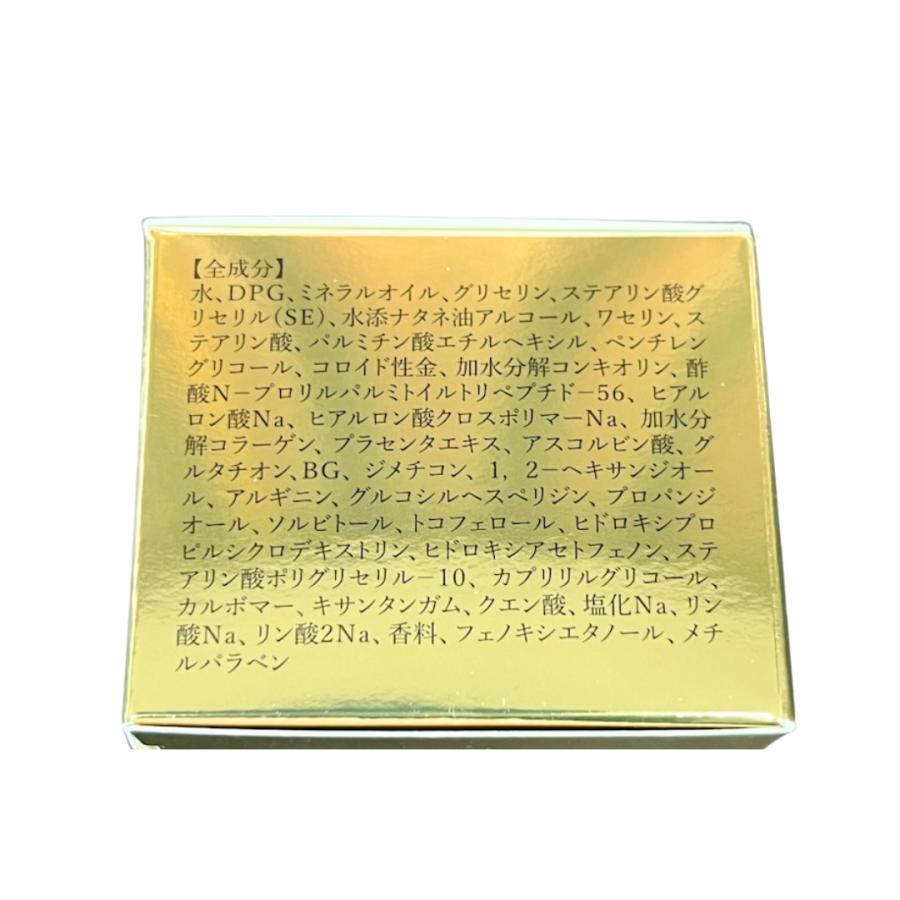 【全成分】
水、DPG、ミネラルオイル、グリセリン、ステアリン酸グ
リセリル(SE)、水添ナタネ油アルコール、ワセリン、ス
テアリン酸、パルミチン酸エチルヘキシル、ペンチレン
グリコール、コロイド性金、加水分解コンキオリン、酢
酸N−プロリルパルミトイルトリペプチド−56、ヒアル
ロン酸Na、ヒアルロン酸クロスポリマーNa、加水分
解コラーゲン、プラセンタエキス、アスコルビン酸、グ
ルタチオン、BG、ジメチコン、1，2−ヘキサンジオー
ル、アルギニン、グルコシルヘスペリジン、プロパンジ
オール、ソルビトール、トコフェロール、ヒドロキシプロ
ピルシクロデキストリン、ヒドロキシアセトフェノン、ステ
アリン酸ポリグリセリル−10、カプリリルグリコール、
カルボマー、キサンタンガム、クエン酸、塩化Na、リン
酸Na、リン酸2Na、香料、フェノキシエタノール、メチ
ルパラベン